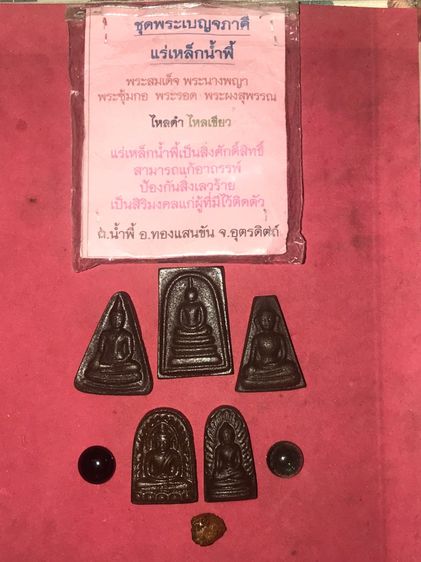 ชุดพระเบญจภาคี
แร่เหล็กน้ำพี้
พระสมเด็จ พระนางพญา
พระซุ้มกอ พระรอด พระผงสุพรรณ
ไหลดำ ไหลเขียว
แร่เหล็กน้ำพี้เป็นสิ่งศักดิ์สิทธิ์
สามารถแก้อาถรรพ์
ป้องกันสิ่งเลวร้าย
เป็นสิริมงคลแก่ผู้ที่มีไว้ติดตัว
ต.น้ำพี้ อ.ทองแสนขัน จ.อุตรดิตถ์